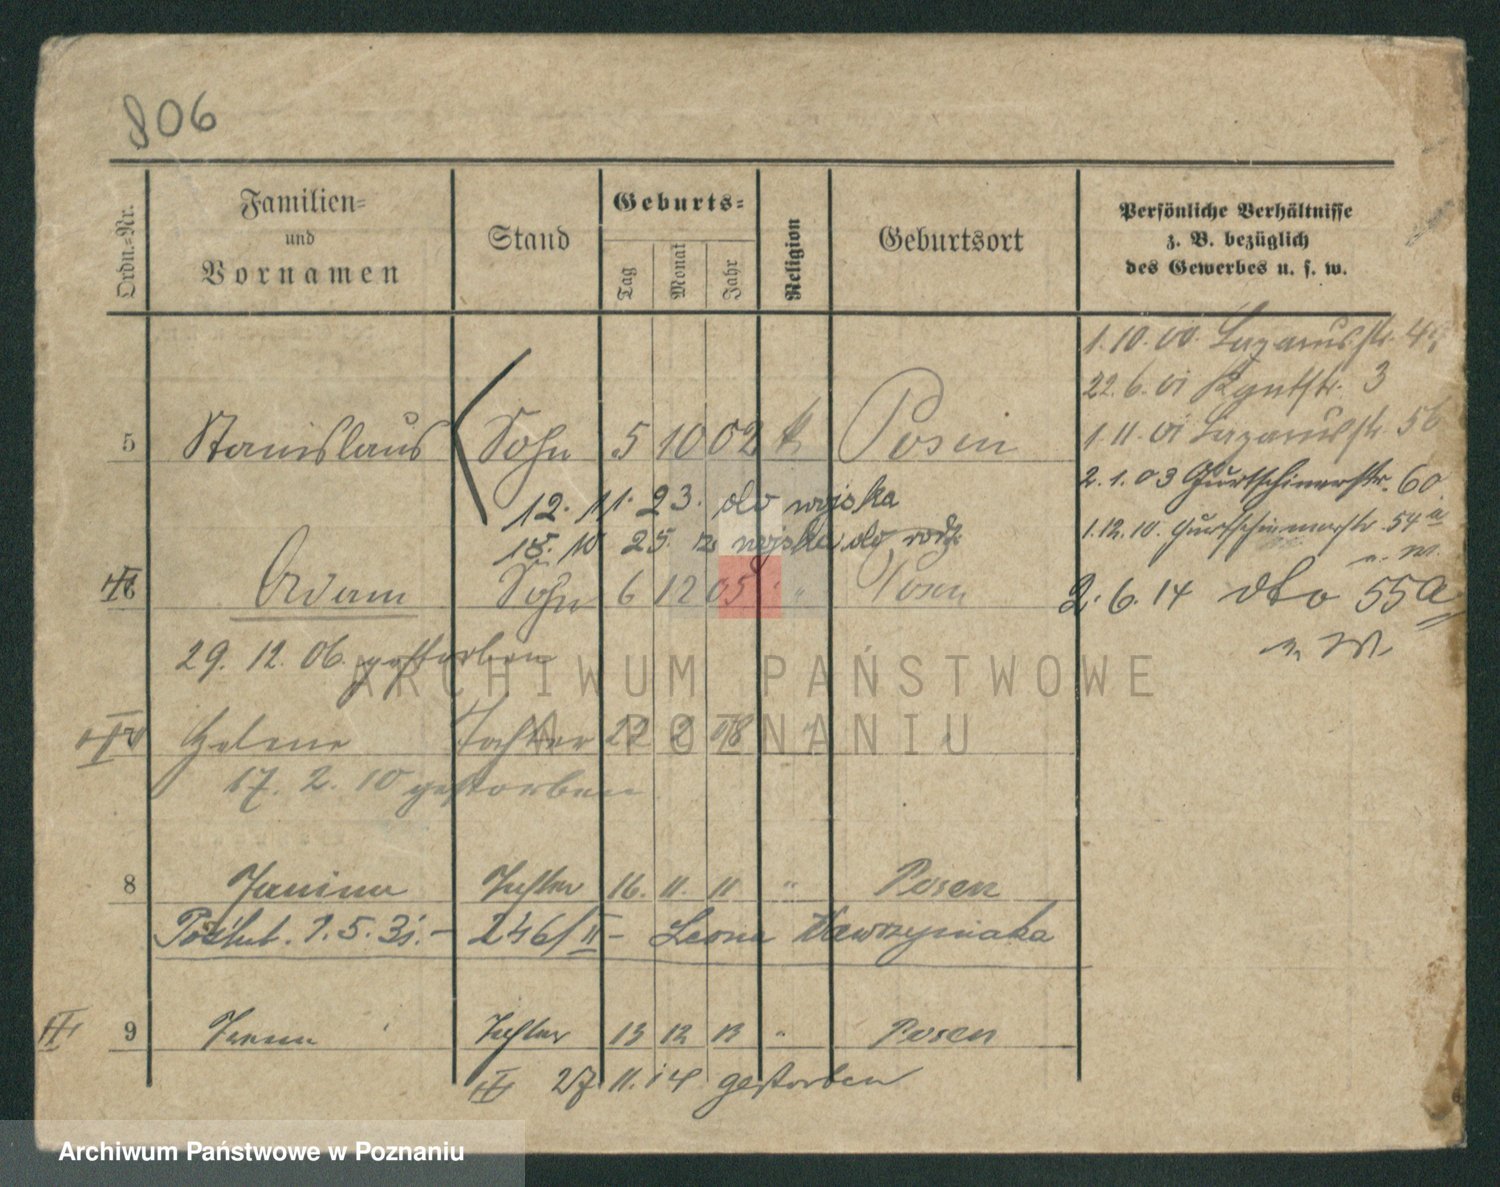 806
Ordn.=Nr.
Familien=
und
Vornamen
Stand
Geburts=
Tag
Monat
Jahr
Religion
Geburtsort
Persönliche Verhältnisse
z. B. bezüglich
des Gewerbes u. s. w.
1.10.00 Lazarusstr.
22.6.01 3
1.11.01 Lazarusstr. 5b
2.1.03 Gurtschinerstr. 60
1.12.10. Gurtschinerstr. 54a
n. W.
2.6.14 dto 55a
n. W.
5 Stanislaus Sohn 5 10 02 k Posen
12. 11. 23. do wojska
15. 10 25. z wojska do rodz.
Adam Sohn 6 12 05 " " Posen
29. 12. 06. gestorben
Helene Tochter 22 2 08 " "
17. 2. 10 gestorben
8 Janina Tochter 16. 11. 11 " Posen
1.5.31. – 246/II – Leona Wawrzyniaka
9 Irena Tochter 13 12 13 " Posen
27. 11. 14 gestorben
ARCHIWUM PAŃSTWOWE
W POZNANIU
Archiwum Państwowe w Poznaniu